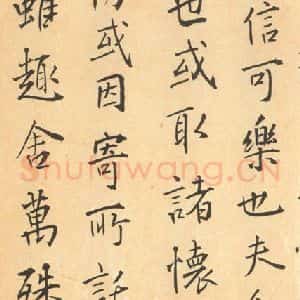 信可樂也夫
世或取諸懷
內或因寄所託
雖趣舍萬殊
Shufawang.CN